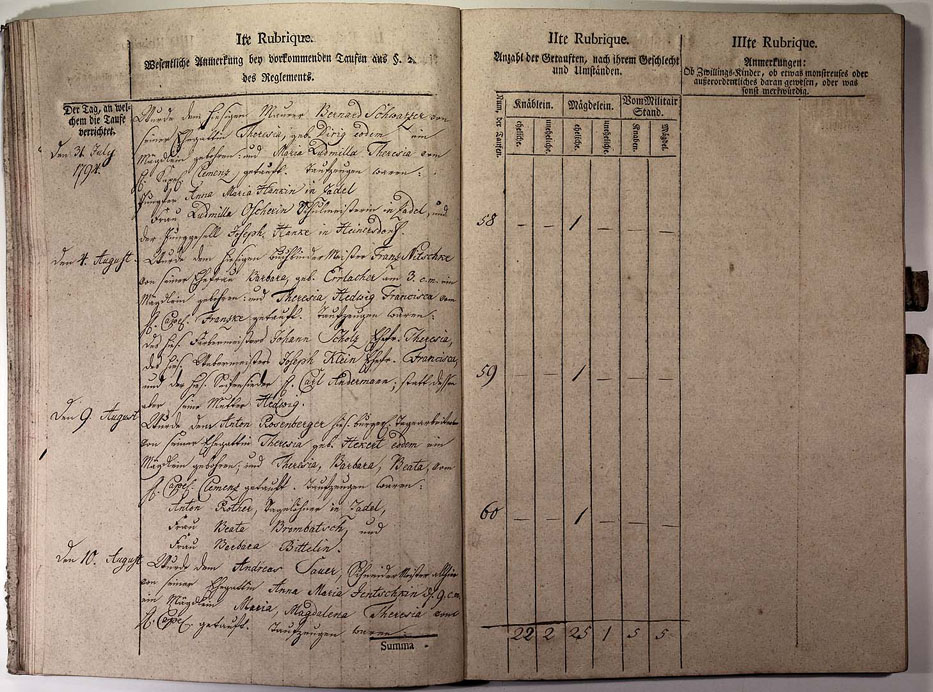 Ite Rubrique.
Wesentliche Anmerkung bey vorkommenden Taufen aus §. 2.
des Reglements.
Der Tag, an wel-
chem die Taufe
verrichtet.
Den 31. July
1794.
Wurde dem hiesigen Maurer Bernard von
seiner Ehegattin Theresia, geb. eodem ein
Mägdlein gebohren: und Maria Ludmilla Theresia vom
H. Clemens getauft. Taufzeugen waren:
Jungfer Anna Maria Hankin in Zadel
Frau Ludmilla Schulmeisterin in Zadel, und
der Junggesell Joseph Hanke in Heinersdorf.
Den 4. August
Wurde dem hiesigen Buchbinder Meister Franz Nitschke
von seiner Ehefrau Barbara, geb. Errlacher am 3. c. m. ein
Mägdlein gebohren: und Theresia Hedwig Francisca vom
H. Capel. Franske getauft. Taufzeugen waren:
des hies. Färbermeisters Johann Scholz Ehefr. Theresia,
des hies. Webermeisters Joseph Klein Ehefr. Francisca,
und der hies. Seifensieder H. Carl Andermann; statt dessen
aber seine Mutter Hedwig.
Den 9 August
Wurde dem Anton Rosenberger hies. bürgerl. Tagearbeiter
von seiner Ehegattin Theresia geb. Hekert eodem ein
Mägdlein gebohren; und Theresia, Barbara, Beata, vom
H. Capel. Clemens getauft. Taufzeugen waren:
Anton Rother, Tagelöhner in Zadel,
Frau Beata Brombatsch, und
Frau Barbara Bittelin.
Den 10. August
Wurde dem Andreas Sauer, Schneider Meister allhier
von seiner Ehegattin Anna Maria Jentschkin d. 9. c. m.
ein Mägdlein Maria, Magdalena Theresia vom
H. Capel. getauft. Taufzeugen waren
Summa
IIte Rubrique.
Anzahl der Getauften, nach ihrem Geschlecht
und Umständen.
Num. der Taufen.
Knäblein.
Mägdelein.
Vom Militair
Stand.
eheliche.
uneheliche.
eheliche.
uneheliche.
Knaben.
Mägdel.
58 – – 1 – – –
59 – – 1 – – –
60 – – 1 – – –
22 2 25 1 5 5
IIIte Rubrique.
Anmerkungen:
Ob Zwillings-Kinder, ob etwas monstreuses oder
außerordentliches daran gewesen, oder was
sonst merkwürdig.